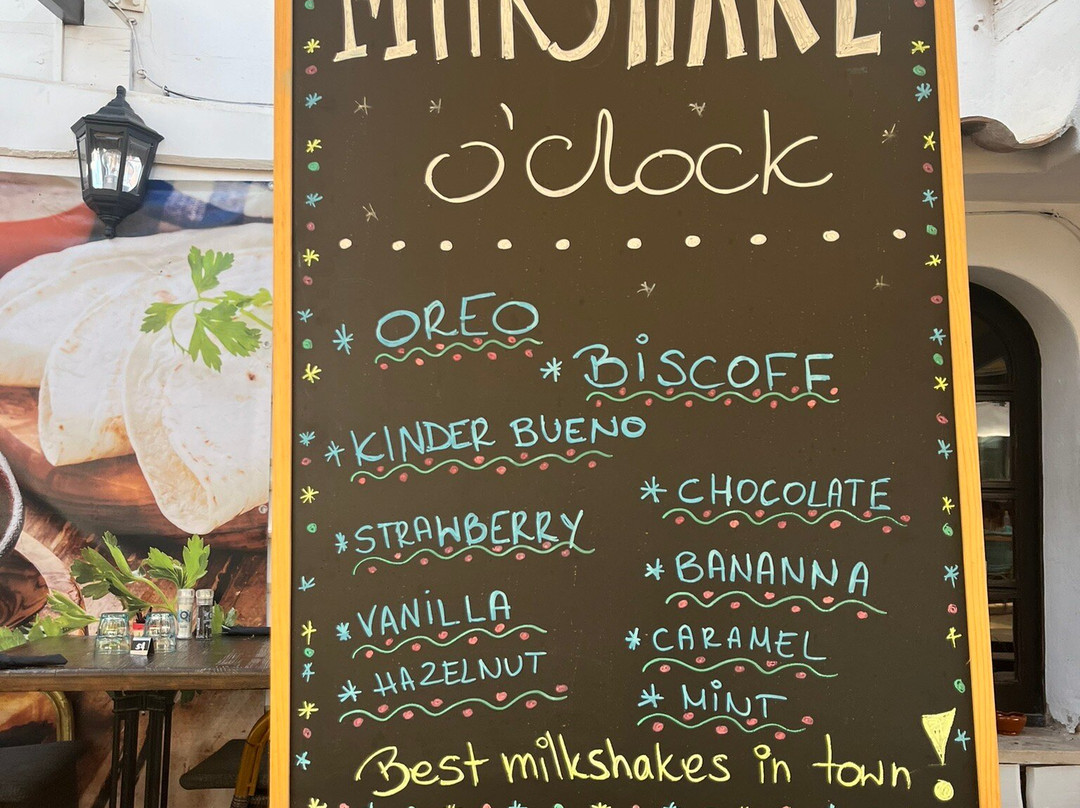 MILKSHAKE
o'clock
* OREO
* BISCOFF
* KINDER BUENO
* CHOCOLATE
* STRAWBERRY
* BANANNA
* VANILLA
* CARAMEL
* HAZELNUT
* MINT
Best milkshakes in town!